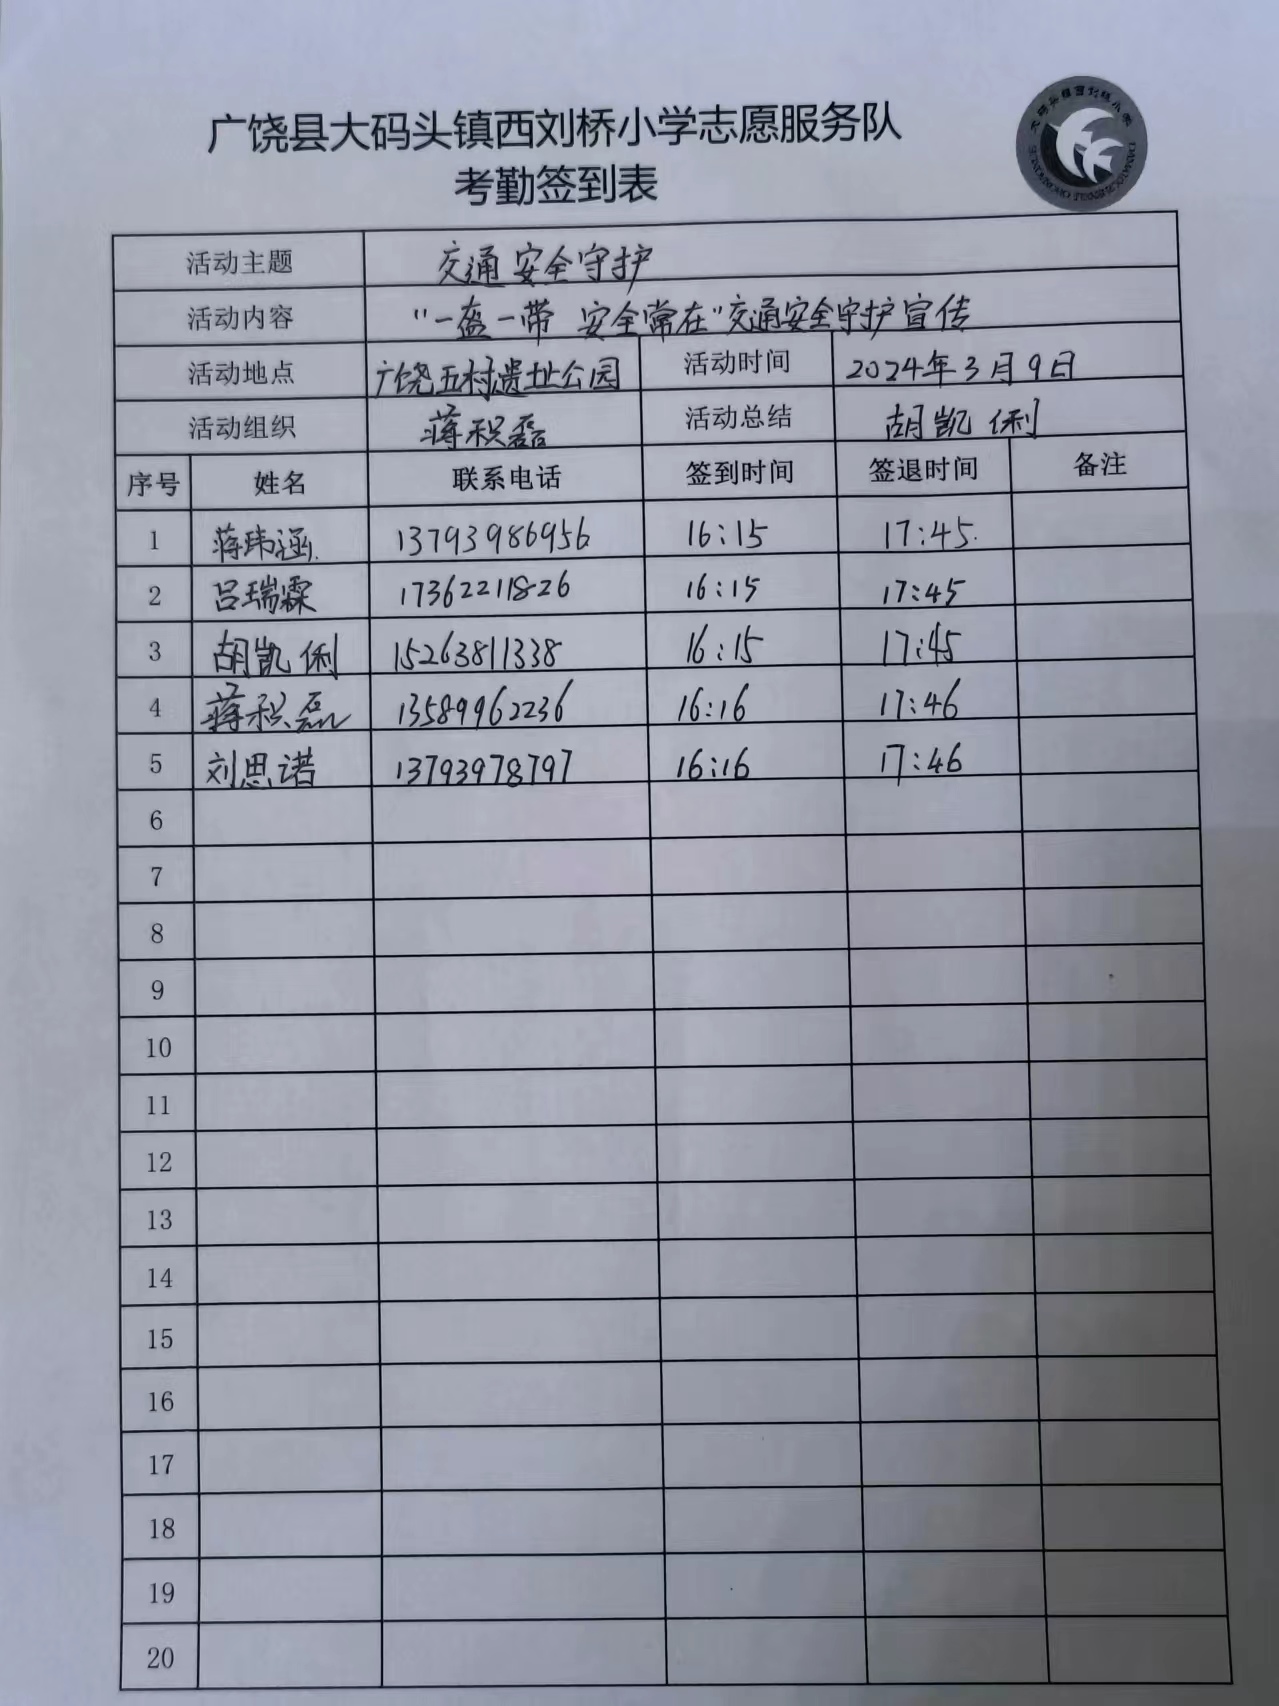 广饶县大码头镇西刘桥小学志愿服务队
考勤签到表
活动主题 交通安全守护
活动内容 "一盔一带 安全常在"交通安全守护宣传
活动地点 广饶五村遗址公园 活动时间 2024年3月9日
活动组织 蒋积磊 活动总结 胡凯俐
序号 姓名 联系电话 签到时间 签退时间 备注
1 蒋玮涵 13793986956 16:15 17:45
2 吕瑞霖 17362211826 16:15 17:45
3 胡凯俐 15263811338 16:15 17:45
4 蒋积磊 13589962236 16:16 17:46
5 刘思诺 13793978797 16:16 17:46
6
7
8
9
10
11
12
13
14
15
16
17
18
19
20